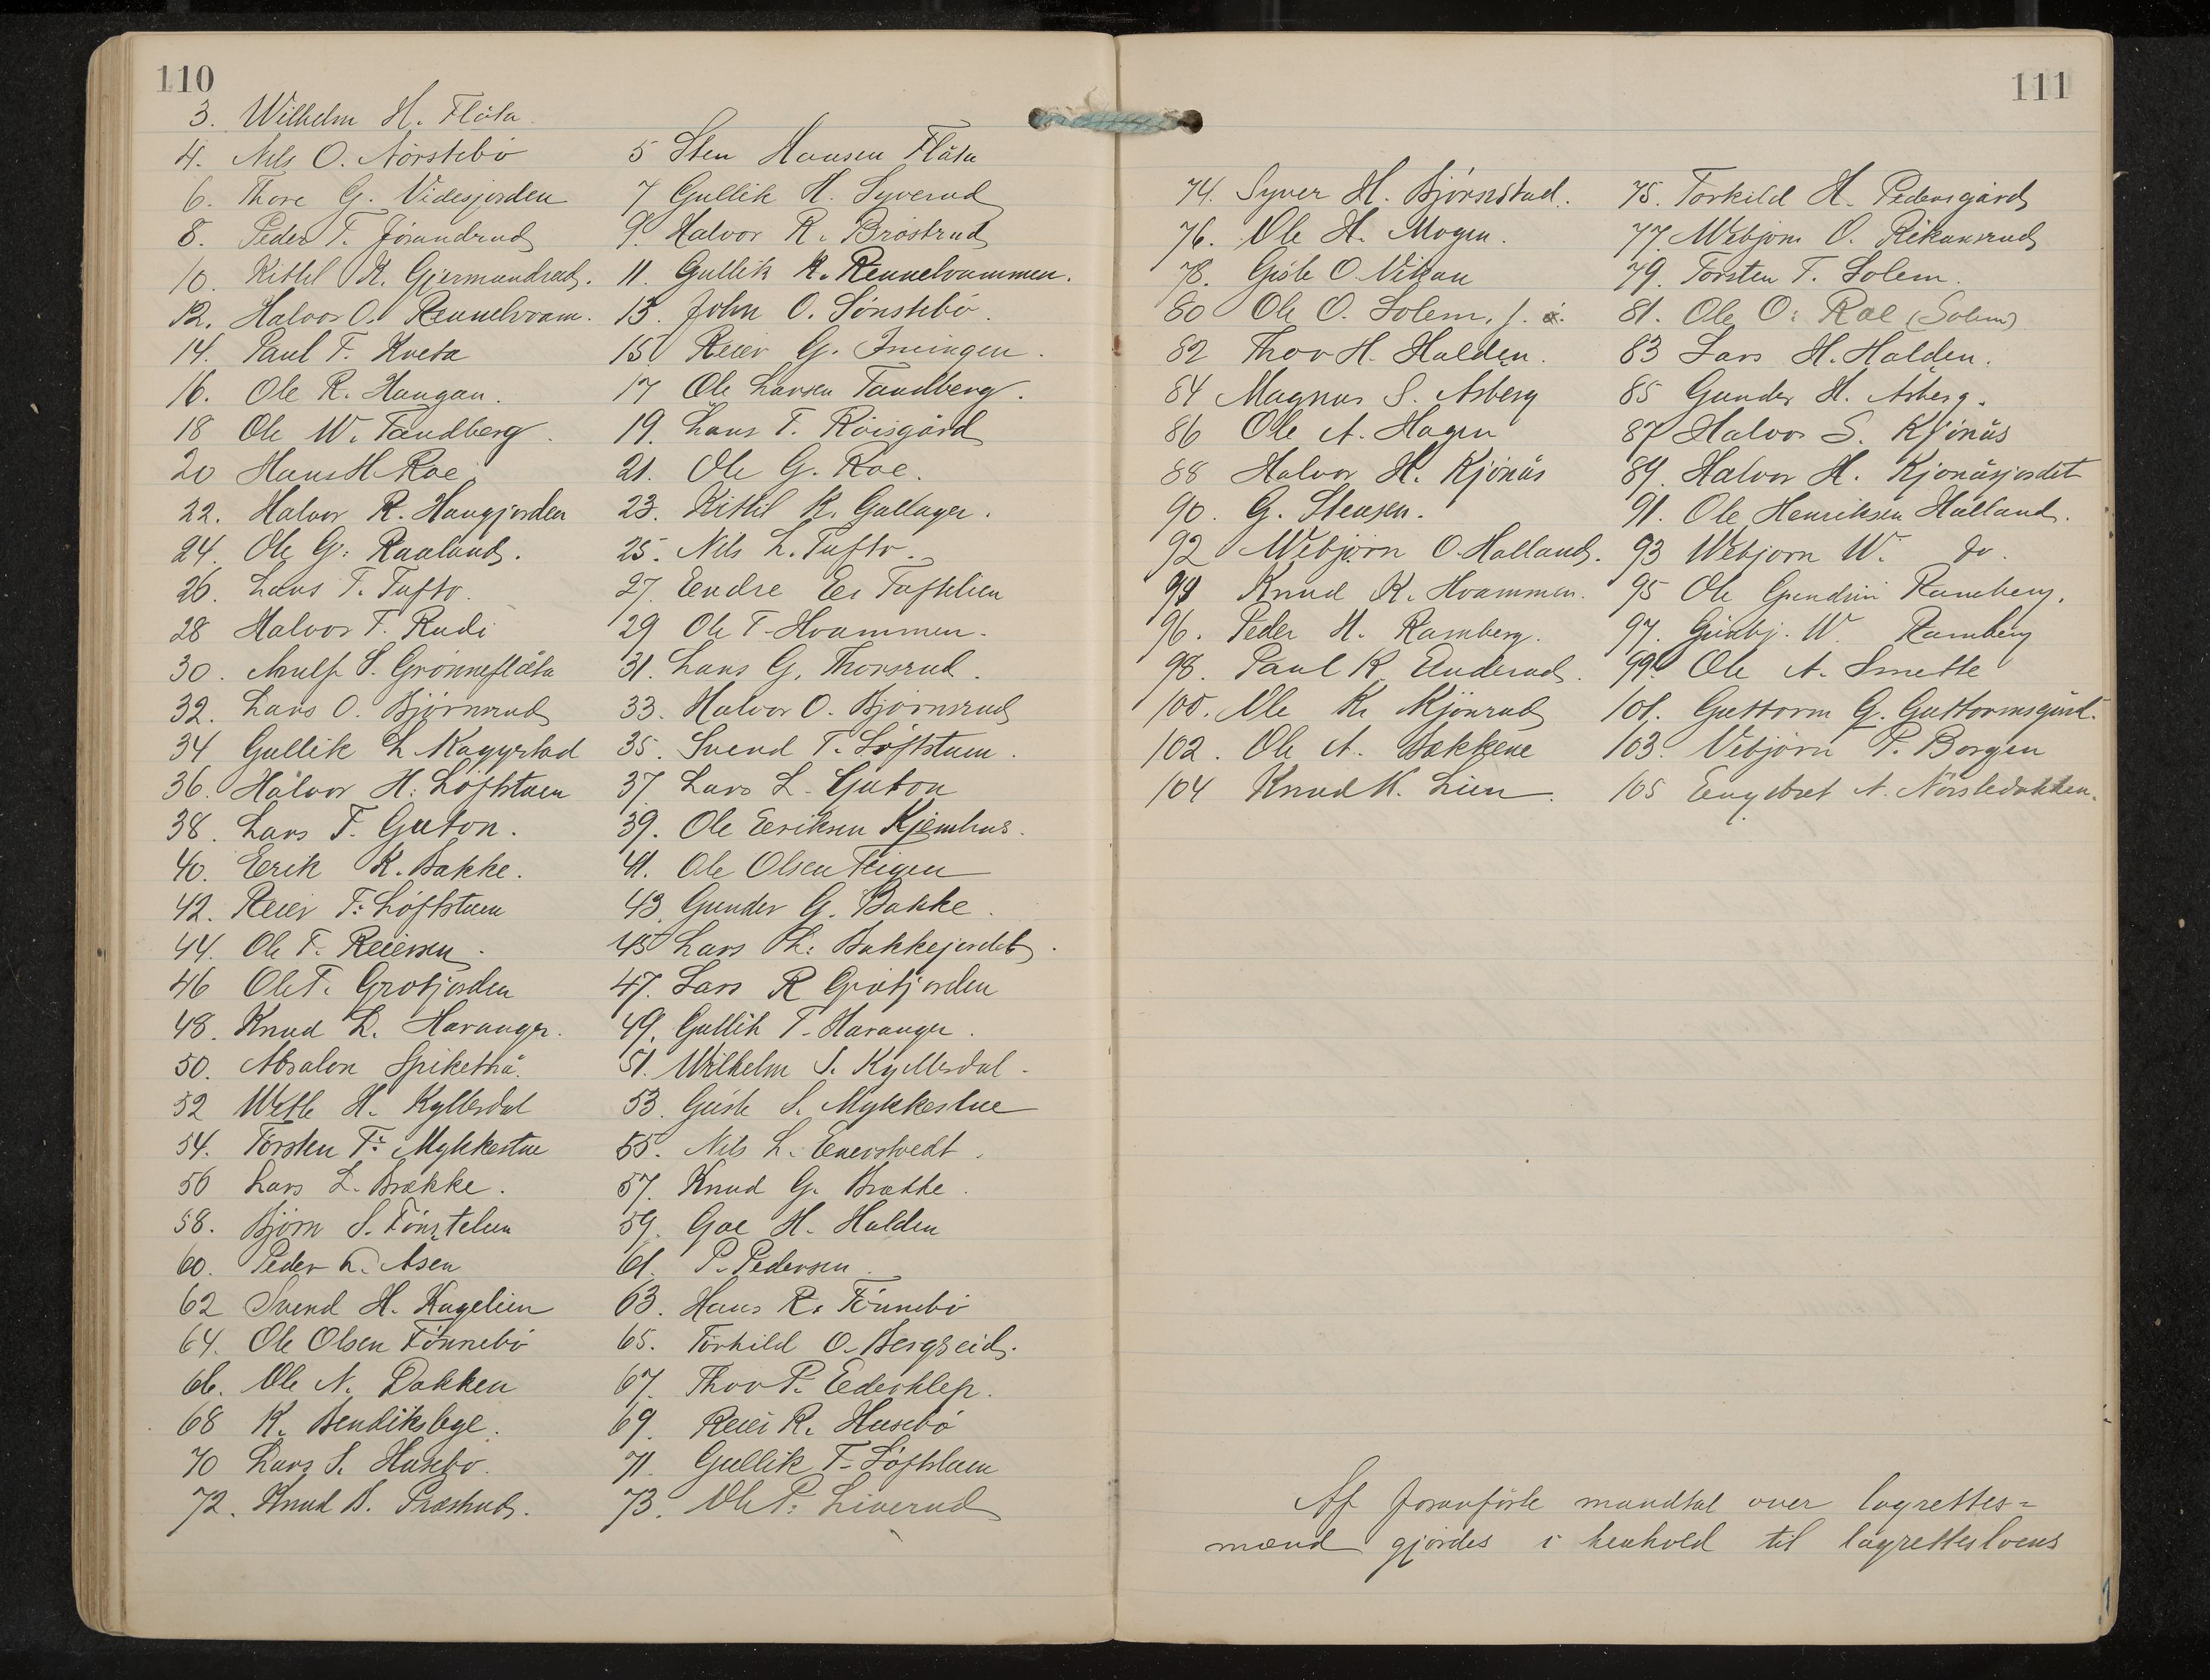 110
3. Wilhelm H. Flåta.
4. Nils O. Nørstebö 5 Sten Hansen Flåta
6. Thore G. Videsjorden 7 Gullik H. Syverud
8. Peder T. Jörandrud 9. Halvor K. Bröstrud
10. Kittil K. Gjermundrud. 11. Gullik K. Rennelvammen.
12. Halvor O. Rennelvam. 13. John O. Sönstebö.
14. Paul T. Kveta 15 Reier G. Inningen.
16. Ole R. Haugan. 17 Ole Larsen Tandberg.
18 Ole W. Tandberg. 19. Lars T. Röisgård
20 Hans H. Roe. 21. Ole G. Roe.
22. Halvor R. Haugjorden 23. Kittil K. Gallager.
24. Ole G. Raaland. 25. Nils L. Tufto.
26. Lars T. Tufto. 27. Eendre E. Tuftelien
28 Halvor T. Rudi 29 Ole T. Hvammen.
30. S. Grönneflåta 31. Lars G. Thorsrud.
32. Lars O. Björnsrud 33. Halvor O. Björnsrud
34 Gullik L. Kaggestad 35. Svend T. Löftstuen.
36. Halvor H. Löftstuen 37. Lars L. Guton
38. Lars T. Guton. 39. Ole Eeriksen Kjemhus.
40. Eerik K. Bakke. 41. Ole Olsen Teigen
42. Reier T. Löftstuen 43. Gunder G. Bakke.
44. Ole T. Reiersen. 45 Lars Th. Bakkejordet.
46 Ole T. Grotjorden 47. Lars R Grotjorden
48. Knud L. Havanger. 49. Gullik T. Havanger.
50. Absalon Spikethå. 51. Wilhelm S. Kyllesdal.
52 Wetle H. Kyllesdal 53. Gisle S. Mykkestue
54. Torsten T. Mykkestue 55. Nils L. Enerstvedt.
56 Lars L. Brække. 57. Knud G. Brække.
58. Björn S. Tönstelien 59. Goe H. Halden
60. Peder L. Åsen 61. P. Pedersen.
62 Svend H. Hagelien 63. Hans R. Tönnebö
64. Ole Olsen Tönnebö 65. Torkild O. Bergseid.
66. Ole N. Dokken 67. Thor P. Ederklep.
68 K. Bendikslege. 69. Reier R. Husebö
70 Lars S. Husebö. 71. Gullik T. Löftstuen
72. Knud B. Præstrud. 73. Ole P. Liverud
111
74. Syver H. Björnstad. 75. Torkild H. Pedersgård
76. Ole H. Mogen. 77. Webjörn O. Rikansrud
78. Gisle O. Vikan 79. Torsten T. Solem.
80 Ole O. Solem, j. 81. Ole O. Roe (Solem)
82 Thor H. Halden. 83 Lars H. Halden.
84 Magnus S. Åsberg 85 Gunder H. Åsberg.
86 Ole A. Hagen 87 Halvor S. Kjönås
88 Halvor H. Kjönås 89. Halvor H. Kjonåsjordet
90. G. Stensen. 91. Ole Henriksen Halland.
92 Webjörn O. Halland. 93 Webjorn W. do.
94 Knud K. Hvammen. 95 Ole Ramberg.
96. Peder H. Ramberg. 97. Gunbj. W. Ramberg
98. Paul K. Ruderud. 99. Ole A. Smette
100. Ole K. Mjönrud 101. Guttorm G. Guttormsgård.
102. Ole A. Bakkene 103. Vebjörn P. Borgen
104 Knud K. Lien. 105 Engebret A. Nörstedokken.
Af foranförte mandtal over lagrettes=
mænd gjördes i henhold til lagretteslovens